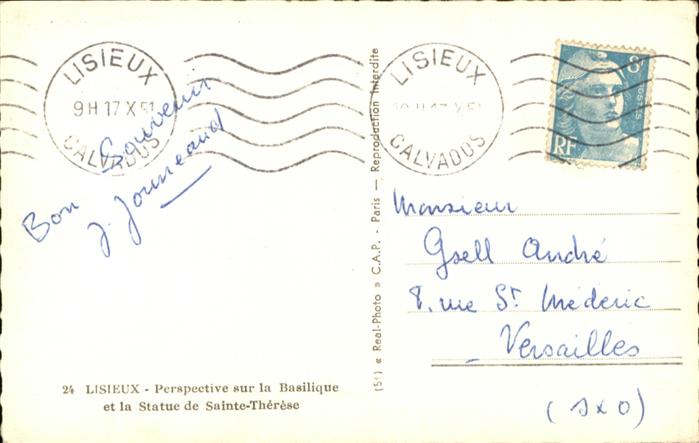 LISIEUX
9H 17 X 51
CALVADOS
LISIEUX
17 X 51
CALVADOS
8F
POSTES
RF
Bon Souvenir
J. Journeaud
Monsieur
Gsell André
8, rue St Médéric
Versailles
(S x O)
24 LISIEUX - Perspective sur la Basilique
et la Statue de Sainte-Thérèse
(51) « Real-Photo » C.A.P. - Paris — Reproduction interdite